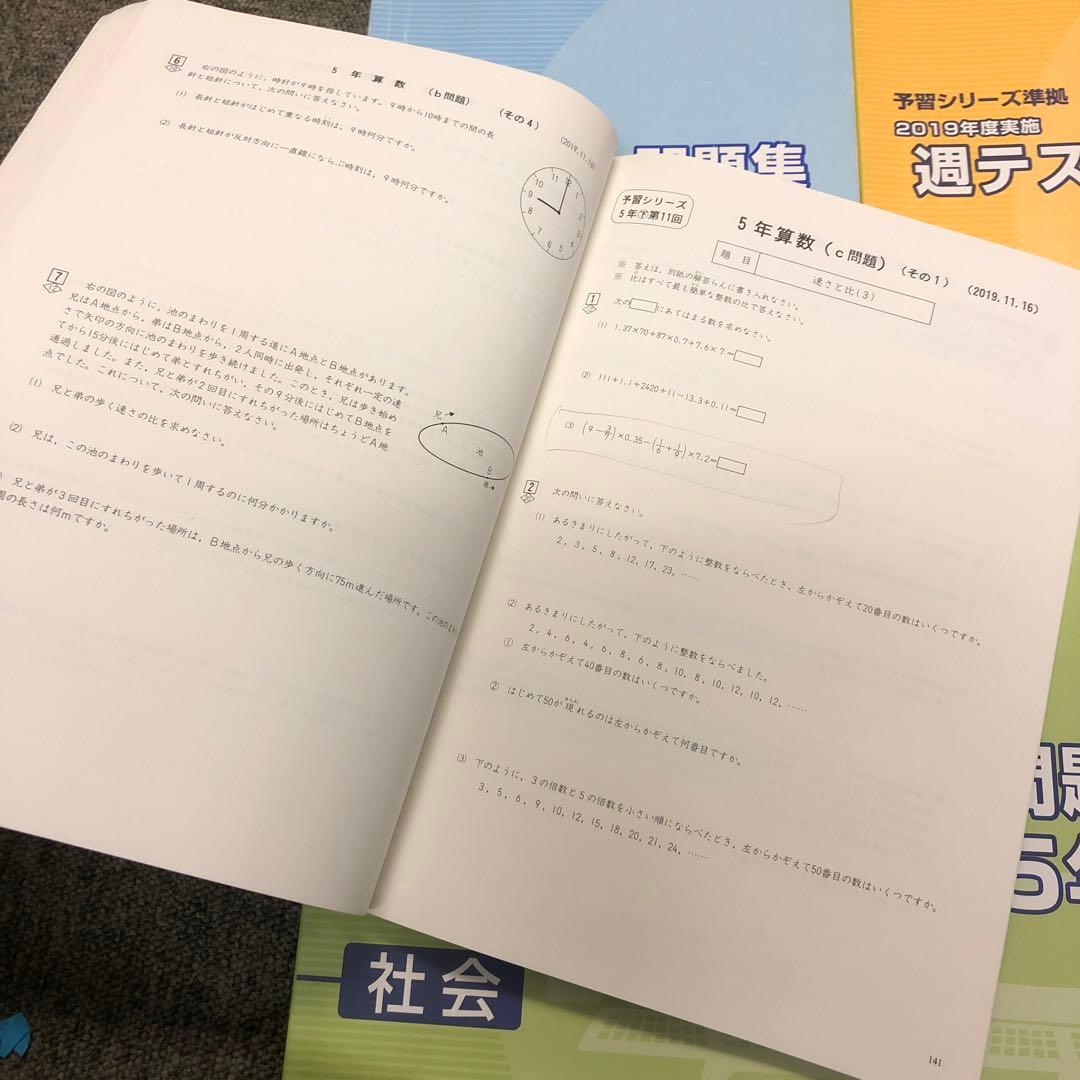 5年算数 (b問題) (その4) (2019.11.16)
6
右の図のように,時計が9時を指しています。9時から10時までの間の長
針と短針について,次の問いに答えなさい。
(1) 長針と短針がはじめて重なる時刻は,9時何分ですか。
(2) 長針と短針が反対方向に一直線にならぶ時刻は,9時何分ですか。
11 12 1
10 2
9 3
8 4
7 6 5
7
右の図のように,池のまわりを1周する道にA地点とB地点があります。
兄はA地点から,弟はB地点から,2人同時に出発し,それぞれ一定の速
さで矢印の方向に池のまわりを歩き続けました。このとき,兄は歩き始め
てから15分後にはじめて弟とすれちがい,その9分後にはじめてB地点を
通過しました。また,兄と弟が2回目にすれちがった場所はちょうどA地
点でした。これについて,次の問いに答えなさい。
(1) 兄と弟の歩く速さの比を求めなさい。
(2) 兄は,この池のまわりを歩いて1周するのに何分かかりますか。
兄と弟が3回目にすれちがった場所は,B地点から兄の歩く方向に75m進んだ場所です。この池のまわ
周の長さは何mですか。
兄→
A
池
B
弟→
予習シリーズ
5年下第11回
5年算数(c問題) (その1) (2019.11.16)
題目 速さと比(3)
※ 答えは,別紙の解答らんに書き入れなさい。
※ 比はすべて最も簡単な整数の比で答えなさい。
1
次の□にあてはまる数を求めなさい。
(1) 1.37×70+87×0.7+7.6×7=□
(2) 111÷1.1+2420÷11-13.3÷0.11=□
(3) (9-3/7)×0.35-(1/6+1/9)×7.2=□
2
20
次の問いに答えなさい。
(1) あるきまりにしたがって,下のように整数をならべたとき,左からかぞえて20番目の数はいくつですか。
2, 3, 5, 8, 12, 17, 23, ……
(2) あるきまりにしたがって,下のように整数をならべました。
2, 4, 6, 4, 6, 8, 6, 8, 10, 8, 10, 12, 10, 12, ……
① 左からかぞえて40番目の数はいくつですか。
② はじめて50が現れるのは左からかぞえて何番目ですか。
(3) 下のように,3の倍数と5の倍数を小さい順にならべたとき,左からかぞえて50番目の数はいくつですか。
3, 5, 6, 9, 10, 12, 15, 18, 20, 21, 24, ……
141
問題集
予習シリーズ準拠
2019年度実施
週テス
問題
5年
社会